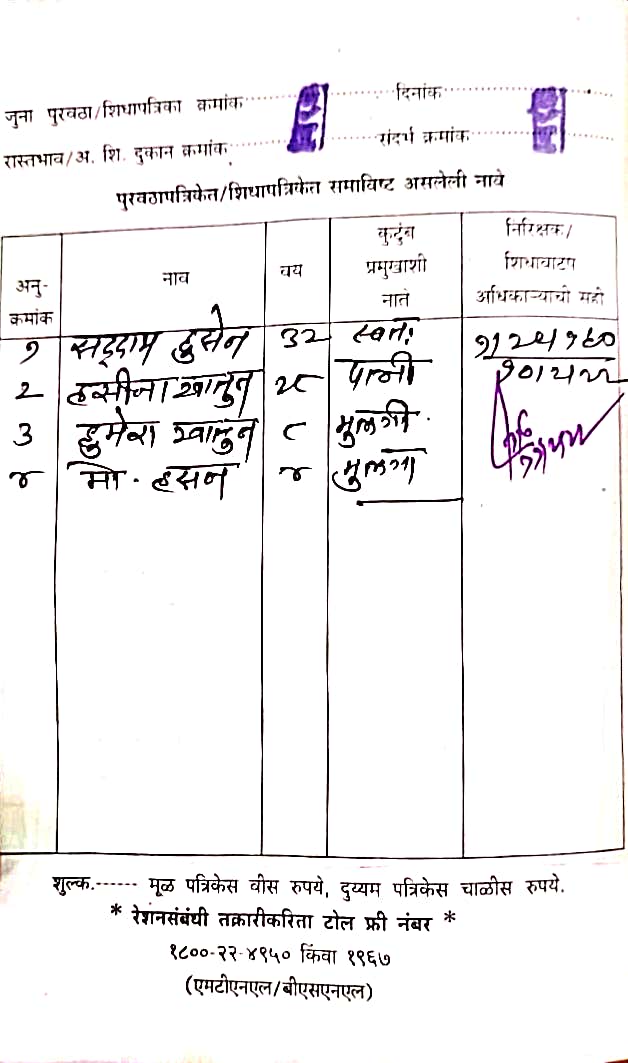 जुना पुरवठा/शिधापत्रिका क्रमांक दिनांक
रास्तभाव/अ. शि. दुकान क्रमांक संदर्भ क्रमांक
पुरवठापत्रिकेत/शिधापत्रिकेत समाविष्ट असलेली नावे
अनु-क्रमांक नाव वय कुटुंब प्रमुखाशी नाते निरिक्षक/शिधावाटप अधिकाऱ्याची सही
१ सद्दाम हुसेन ३२ स्वतः
२ हसीना खातुन २८ पत्नी
३ हुमेरा खातुन ८ मुलगी
४ मो. हसन ४ मुलगा
शुल्क.------ मूळ पत्रिकेस वीस रुपये, दुय्यम पत्रिकेस चाळीस रुपये.
* रेशनसंबंधी तक्रारीकरिता टोल फ्री नंबर *
१८००-२२-४९५० किंवा १९६७
(एमटीएनएल/बीएसएनएल)